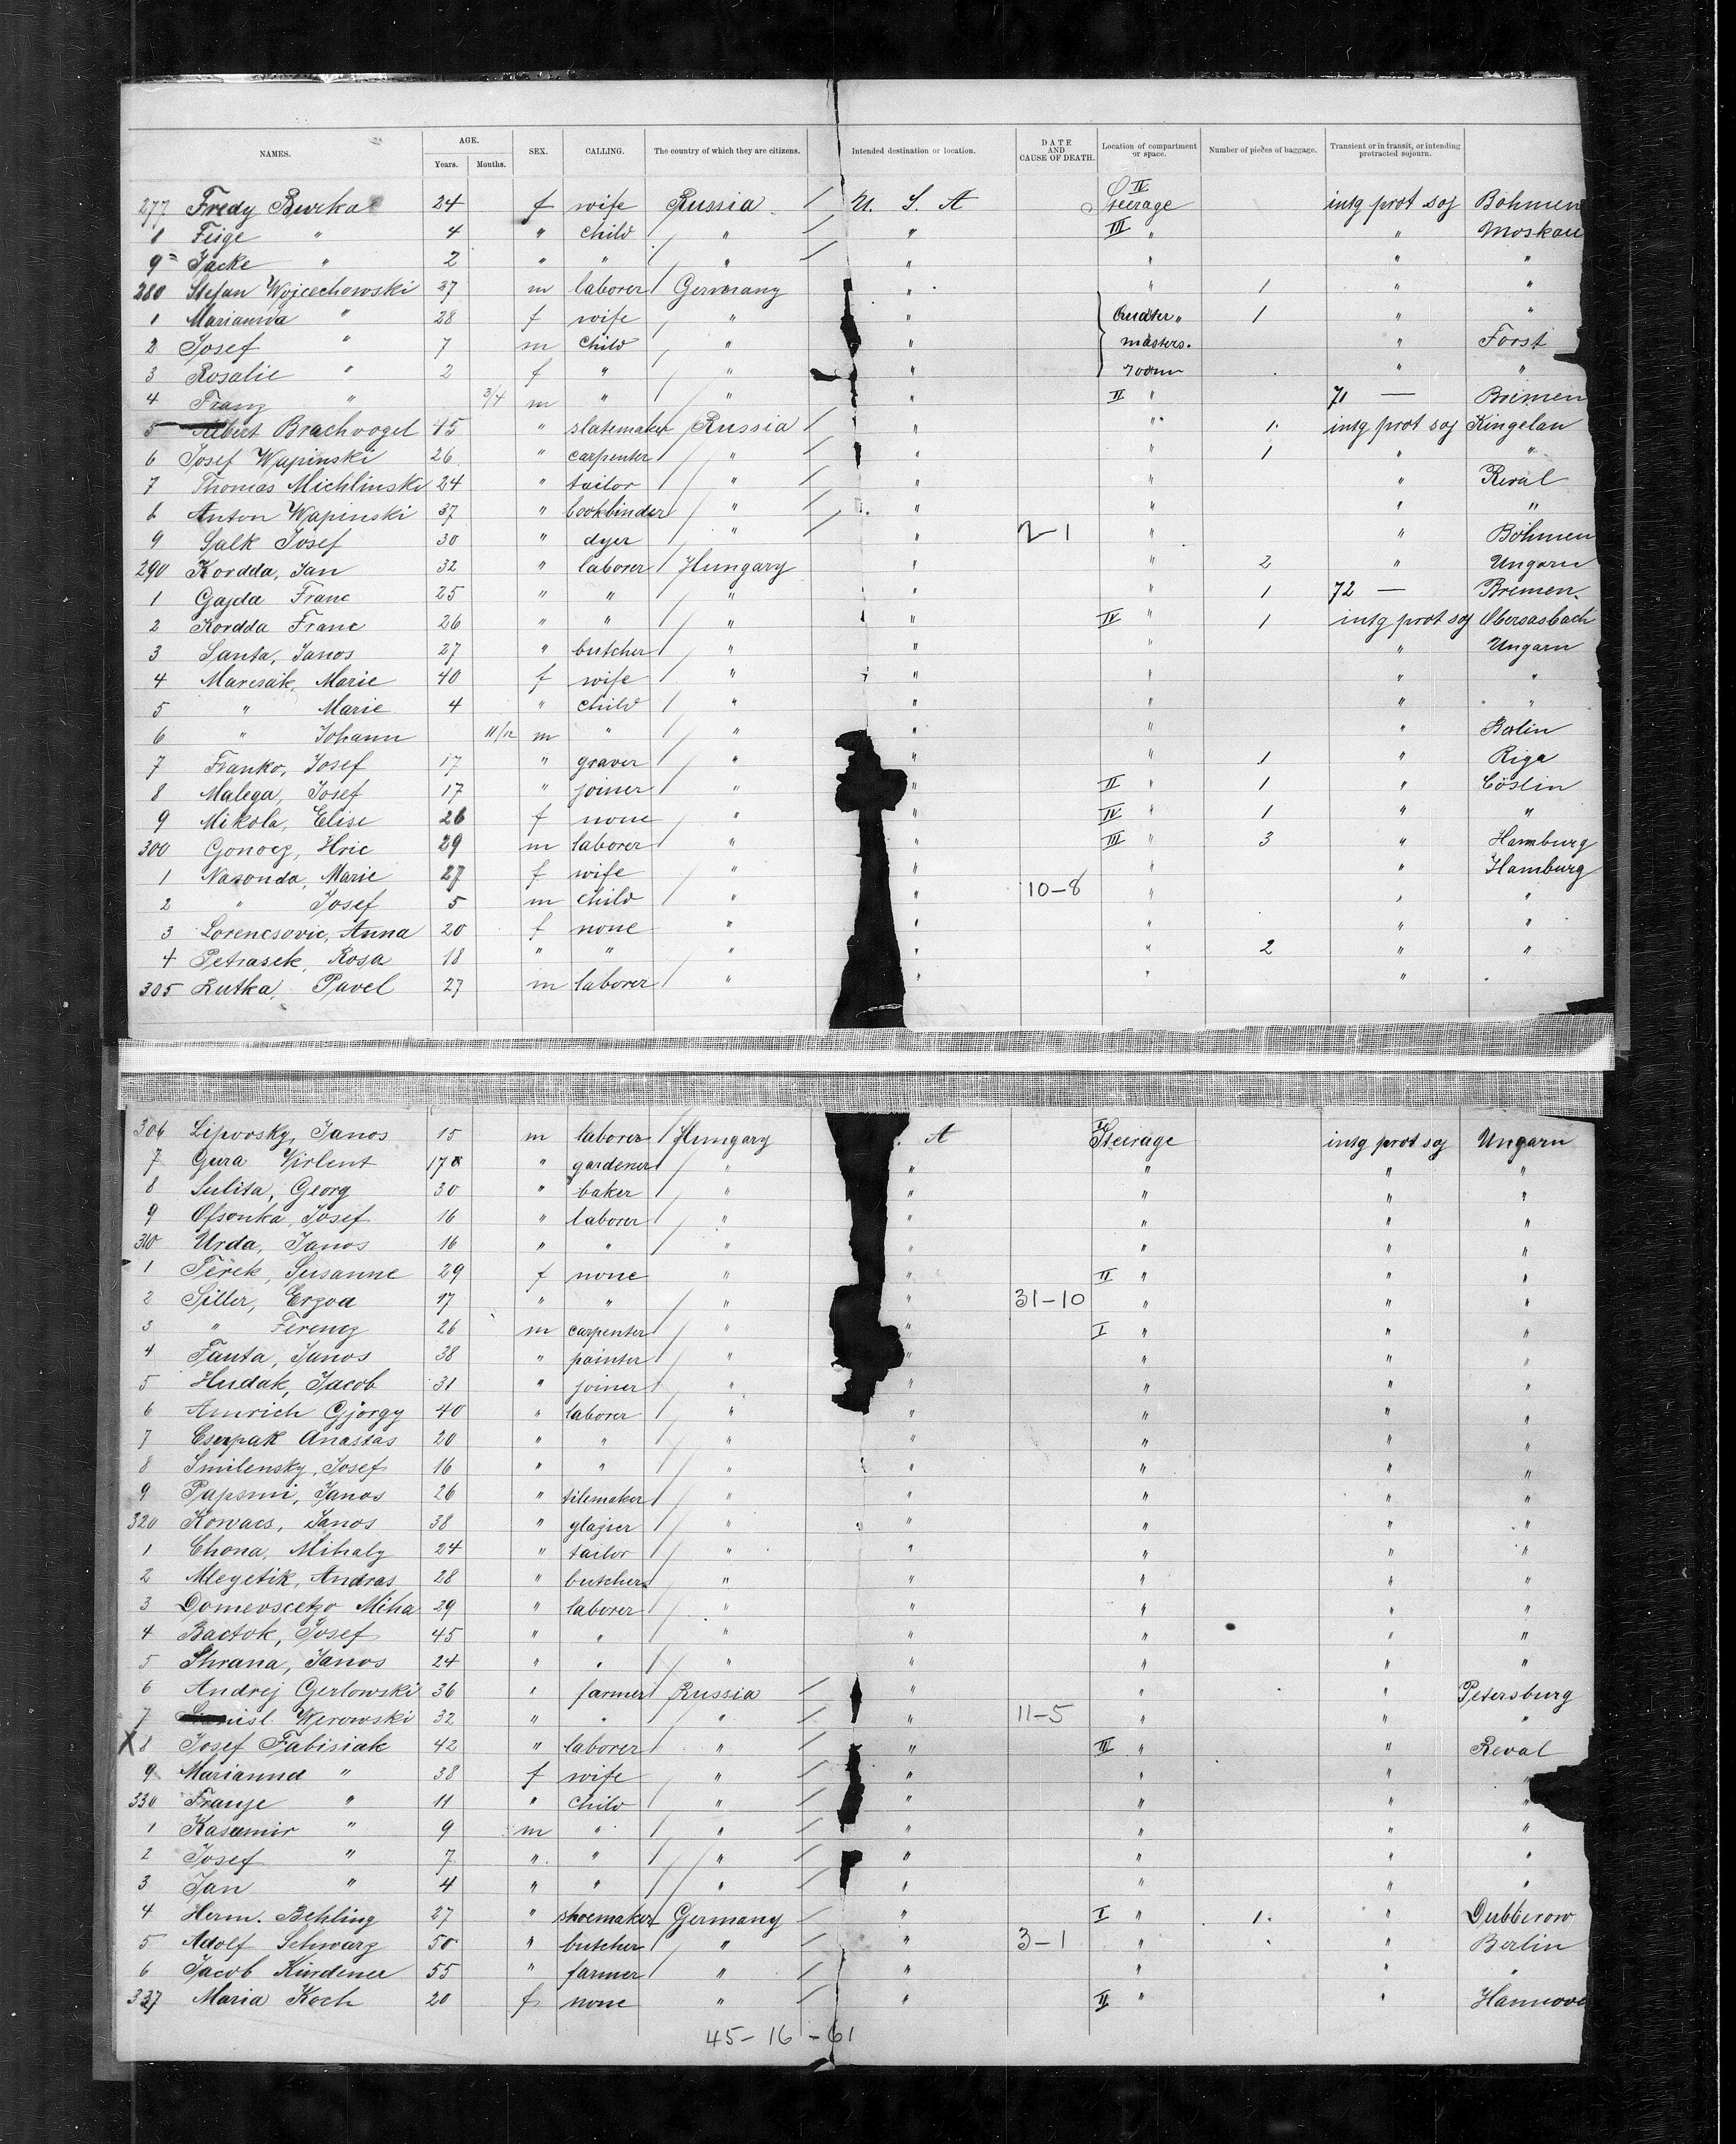 NAMES. AGE. Years. Months. SEX. CALLING. The country of which they are citizens. Intended destination or location. DATE AND CAUSE OF DEATH. Location of compartment or space. Number of pieces of baggage. Transient or in transit, or intending protracted sojourn.
277 Fredy Burka 24 f wife Russia / U. S. A IV Steerage intg prot soj Böhmen
8 Feige " 4 " child / " / " III " " Moskau
9 Jacke " 2 " " / " / " " " "
280 Stefan Wojcechowski 27 m laborer / Germany " " 1 " "
1 Marianna " 28 f wife / " " Quater " 1 " "
2 Josef " 7 m child / " " masters. " Forst
3 Rosalie " 2 f " / " " room " "
4 Franz " 3/4 m " / " " II " 71 — Bremen
5 Albert Brachvogel 45 " slatemaker / Russia / " " 1. intg prot soj Kingelan
6 Josef Wapinski 26 " carpenter / " / " " 1 " "
7 Thomas Michlinski 24 " tailor / " / " " " Reval
8 Anton Wapinski 37 " bookbinder / " / " " " "
9 Salk Josef 30 " dyer / " / " 2-1 " " Böhmen
290 Kordda, Jan 32 " laborer / Hungary " " 2 " Ungarn
1 Gajda Franc 25 " " / " " " 1 72 — Bremen.
2 Kordda Franc 26 " " / " " IV " 1 intg prot soj Obersasbach
3 Santa, Janos 27 " butcher / " " " " Ungarn
4 Marcsák, Marie 40 f wife / " " " " "
5 " Marie 4 " child / " " " " "
6 " Johann 11/12 m " / " " " " Berlin
7 Franko, Josef 17 " graver / " " " 1 " Riga
8 Malega, Josef 17 " joiner / " " II " 1 " Cöslin
9 Mikola, Elise 26 f none / " " IV " 1 " "
300 Gonocz, Hric 29 m laborer / " " III " 3 " Hamburg
1 Nasonda, Marie 27 f wife / " " " " Hamburg
2 " Josef 5 m child / " " 10-8 " " "
3 Lorencsovic, Anna 20 f none / " " " " "
4 Petrasek, Rosa 18 " " / " " " 2 " "
305 Rutka, Pavel 27 m laborer / " " " "
306 Lipovsky, Janos 15 m laborer / Hungary . A II Steerage intg prot soj Ungarn
7 Gura Virlent 17 " gardener / " " " " "
8 Sulita, Georg 30 " baker / " " " " "
9 Ofsonka, Josef 16 " laborer / " " " " "
310 Urda, Janos 16 " " / " " " " "
1 Terek, Susanne 29 f none " " II " " "
2 Siller, Erzoa 17 " " / " " 31-10 " " "
3 " Ferencz 26 m carpenter / " " I " " "
4 Fanta, Janos 38 " painter / " " " " "
5 Hudak, Jacob 31 " joiner / " " " " "
6 Amrich Gjorgy 40 " laborer / " " " " "
7 Cserpak Anastas 20 " " / " " " " "
8 Smilensky, Josef 16 " " / " " " " "
9 Papsmi, Janos 26 " tilemaker / " " " " "
320 Kowacs, Janos 38 " glazier / " " " " "
1 Chona, Mihaly 24 " tailor / " " " " "
2 Mlegetik, Andras 28 " butcher / " " " " "
3 Domevscetzo Miha 29 " laborer / " " " " "
4 Bactok, Josef 45 " " / " " " " "
5 Shrana, Janos 24 " " / " " " " "
6 Andrej Gerlowski 36 " farmer / Russia / " " " Petersburg
7 Stanisl. Werowski 32 " " / " / " 11-5 " " "
X 8 Josef Fabisiak 42 " laborer / " / " III " " Reval
9 Marianna " 38 f wife / " / " " " "
330 Franze " 11 " child / " / " " " "
1 Kasimir " 9 m " / " / " " " "
2 Josef " 7 " " / " / " " " "
3 Jan " 4 " " / " / " " " "
4 Herm. Behling 27 " shoemaker / Germany / " I " 1. " Dubberow
5 Adolf Schwarz 50 " butcher / " / " 3-1 " " Berlin
6 Jacob Kürdener 55 " farmer / " / " " " "
337 Maria Koch 20 f none " / " II " " Hannove
45-16-61